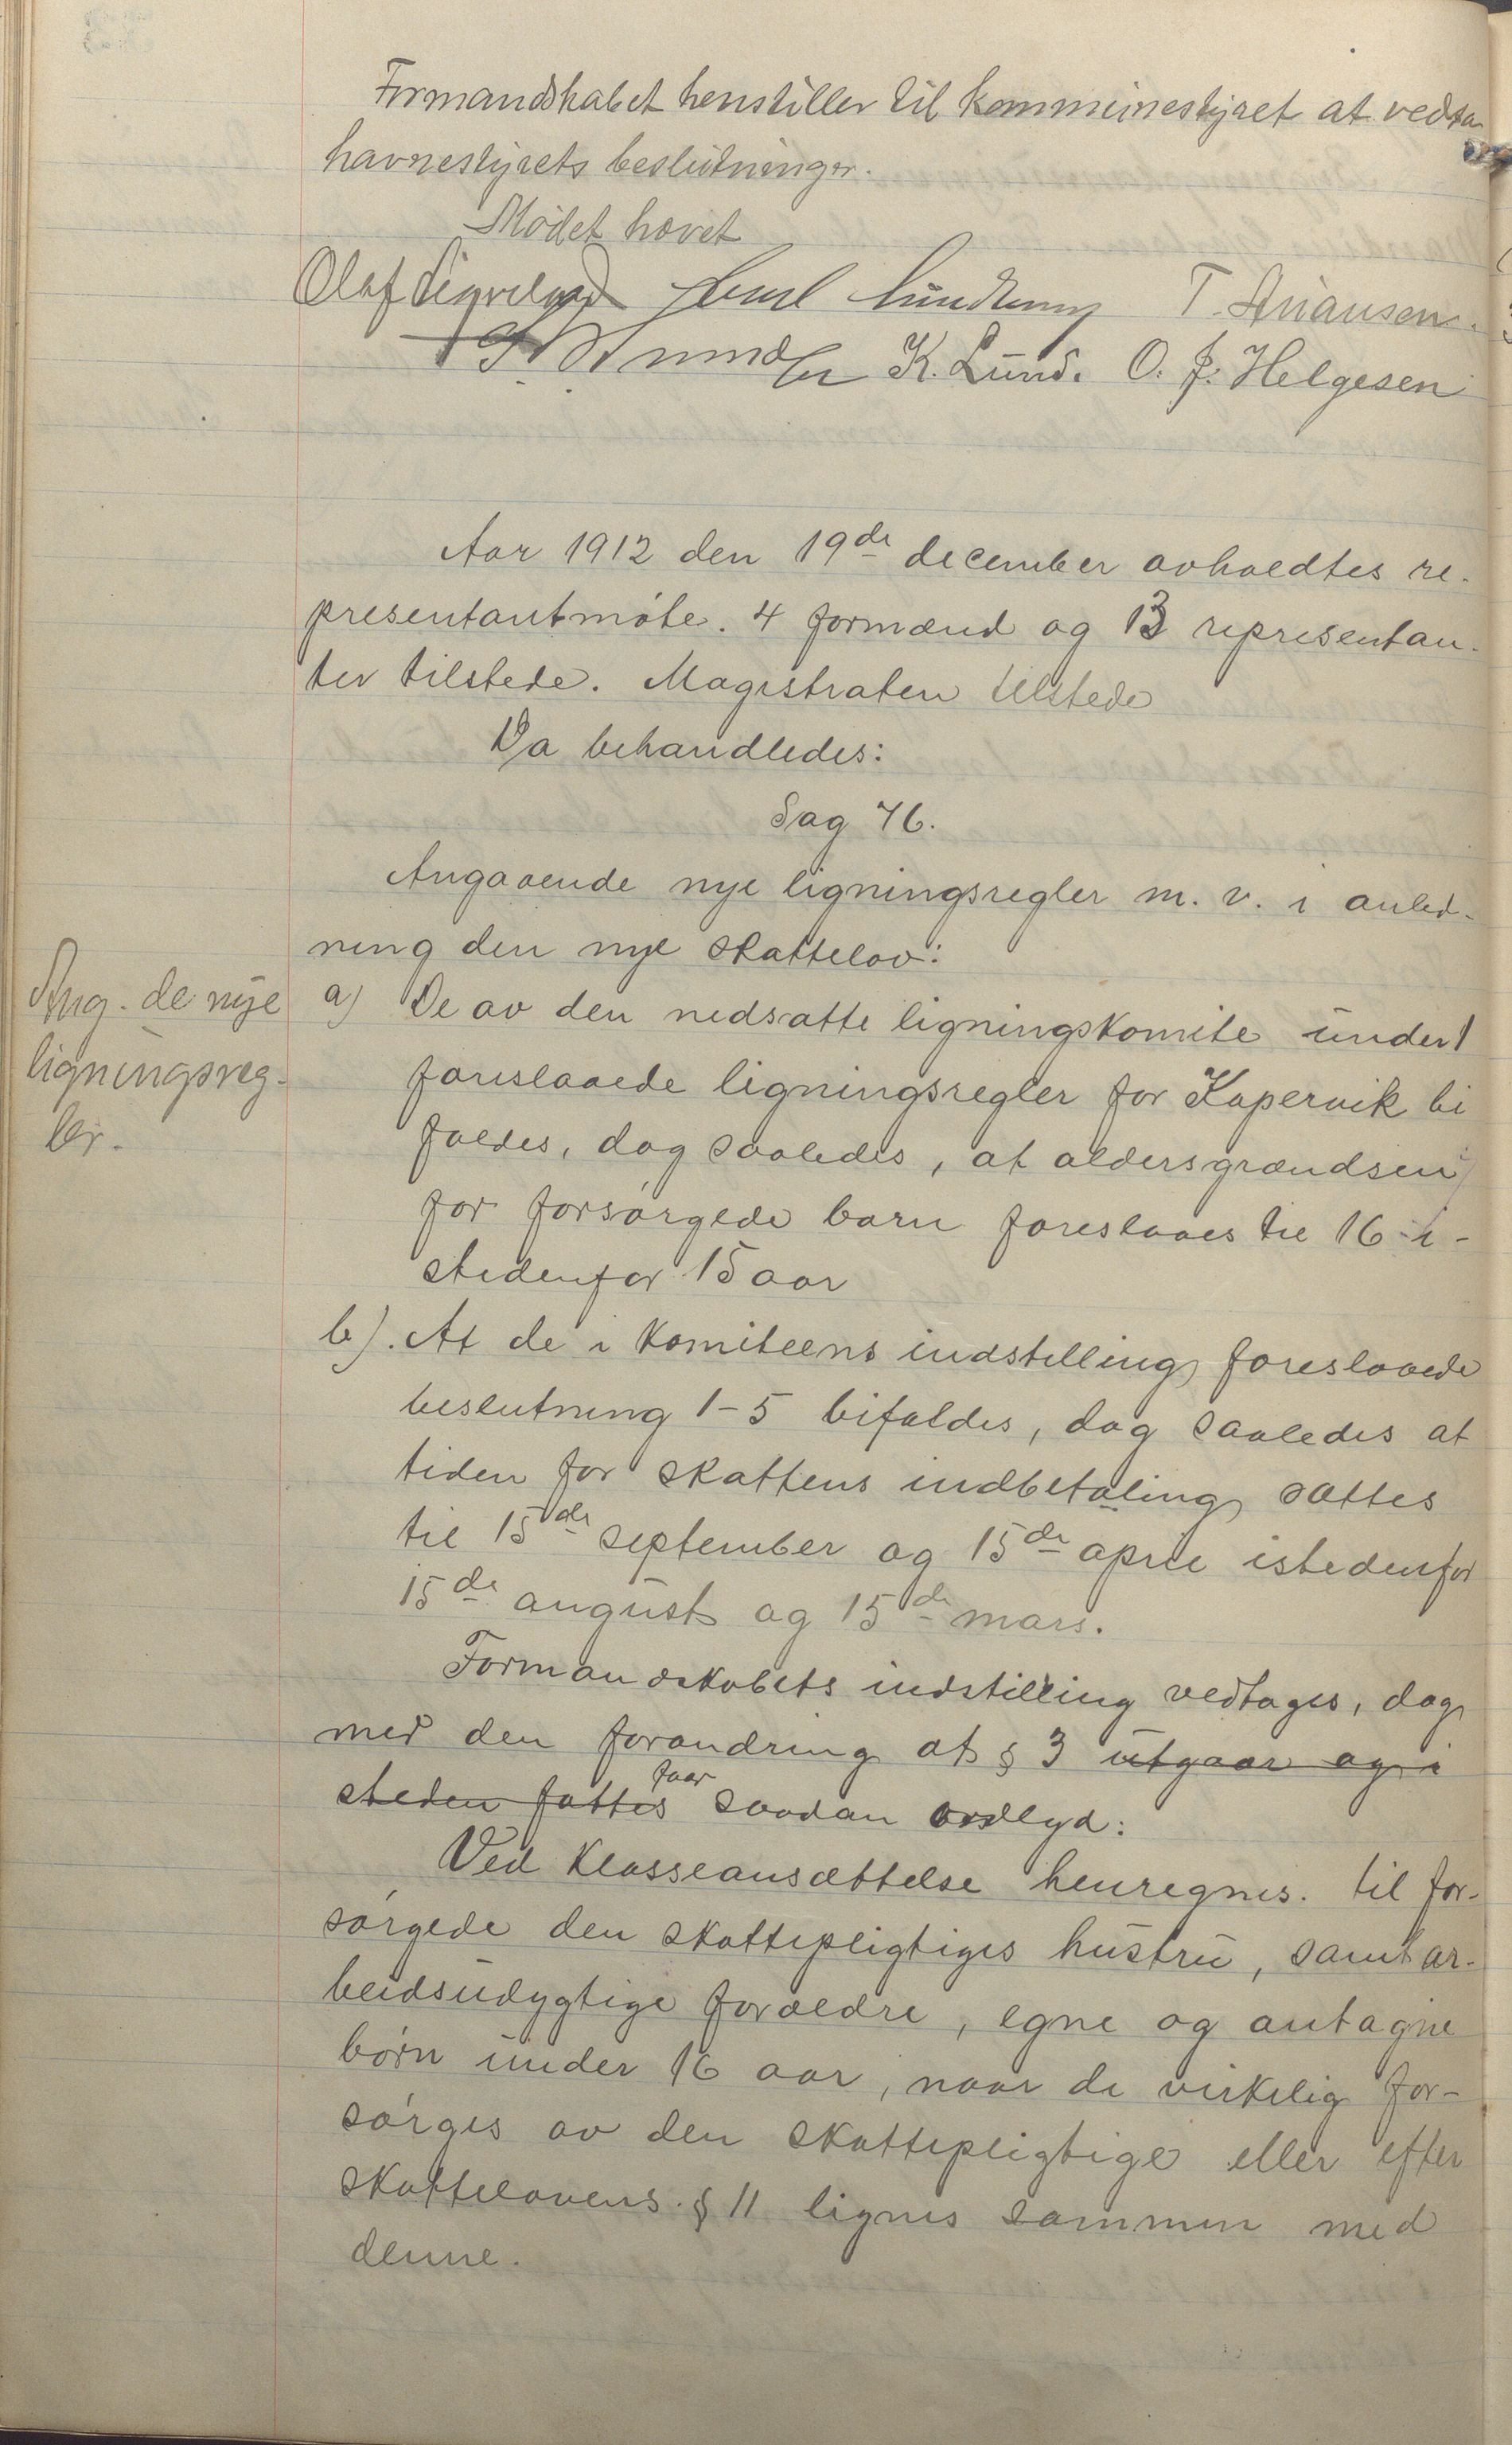 Formandskabet henstiller til kommunestyret at vedta
havnestyrets beslutninger.
Mødet hævet
Olaf T. Anansen
K. Lund. O. J. Helgesen
Aar 1912 den 19de december avholdtes re-
presentantmøte. 4 formænd og 13 representan-
ter tilstede. Magistraten tilstede
Da behandledes:
Sag 76.
Angaaende nye ligningsregler m. v. i anled-
ning den nye skattelov:
Ang. de nye
ligningsreg-
ler.
a) De av den nedsatte ligningskomite under 1
foreslaaede ligningsregler for Kopervik bi
faldes, dog saaledes, at aldersgrændsen
for forsørgede barn foreslaaes til 16 i-
stedenfor 15 aar
b). At de i Komiteens indstilling foreslaaede
beslutning 1-5 bifaldes, dog saaledes at
tiden for skattens indbetaling sættes
til 15de september og 15de april istedenfor
15de august og 15de mars.
Formandskabets indstilling vedtages, dog
med den forandring at § 3 utgaar og i
steden fattes faar saadan ordlyd:
Ved Klasseansættelse henregnes. til for-
sørgede den skattepligtiges hustru, samt ar-
beidsudygtige forældre, egne og antagne
børn under 16 aar, naar de virkelig for-
sørges av den skattepligtige eller efter
skattelovens § 11 lignes sammen med
denne.